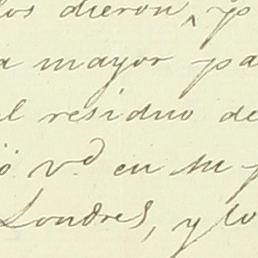 los dieron, p
a mayor pa
l residuo de
ö vd en su p
Londres, y lo